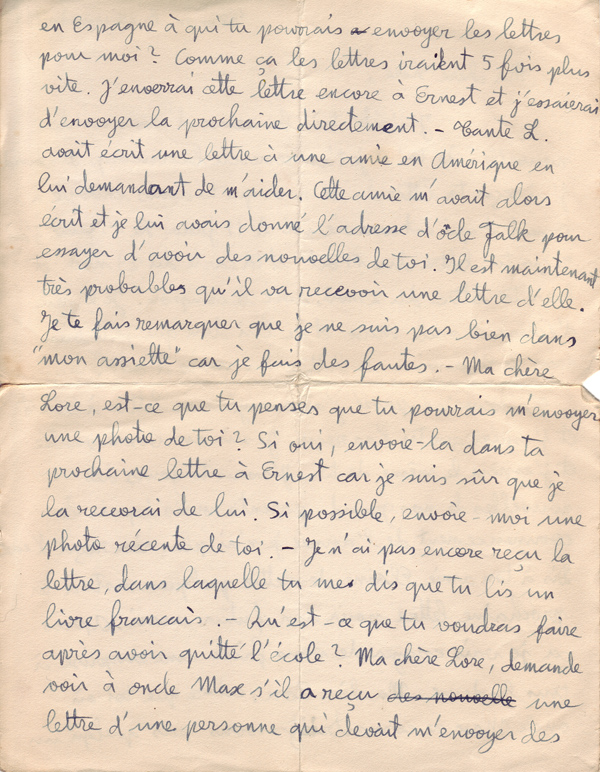 en Espagne à qui tu pourrais envoyer les lettres
pour moi? Comme ça les lettres iraient 5 fois plus
vite. J'enverrai cette lettre encore à Ernest et j'essaierai
d'envoyer la prochaine directement. - Tante L.
avait écrit une lettre à une amie en Amérique en
lui demandant de m'aider. Cette amie m'avait alors
écrit et je lui avais donné l'adresse d'Falk pour
essayer d'avoir des nouvelles de toi. Il est maintenant
très probables qu'il va recevoir une lettre d'elle.
Je te fais remarquer que je ne suis pas bien dans
"mon assiette" car je fais des fautes. - Ma chère
Lore, est-ce que tu penses que tu pourrais m'envoyer
une photo de toi? Si oui, envoie-la dans ta
prochaine lettre à Ernest car je suis sûr que je
la recevrai de lui. Si possible, envoie-moi une
photo récente de toi. - Je n'ai pas encore reçu la
lettre, dans laquelle tu me dis que tu lis un
livre francais. - Qu'est-ce que tu voudras faire
après avoir quitté l'école? Ma chère Lore, demande
voir à oncle Max s'il a reçu des nouvelle une
lettre d'une personne qui devait m'envoyer des